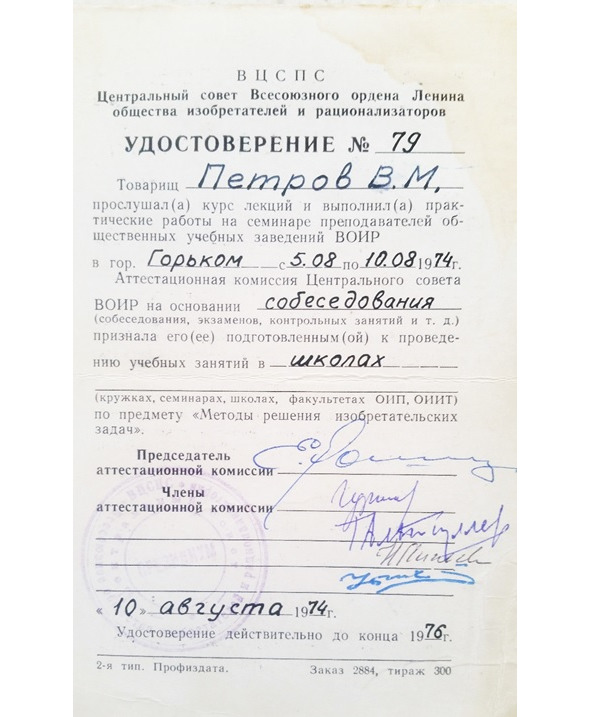 ВЦСПС
Центральный совет Всесоюзного ордена Ленина
общества изобретателей и рационализаторов
УДОСТОВЕРЕНИЕ № 79
Товарищ Петров В.М.
прослушал(а) курс лекций и выполнил(а) прак-
тические работы на семинаре преподавателей об-
щественных учебных заведений ВОИР
в гор. Горьком с 5.08 по 10.08 1974г.
Аттестационная комиссия Центрального совета
ВОИР на основании собеседования
(собеседования, экзаменов, контрольных занятий и т. д.)
признала его(ее) подготовленным(ой) к проведе-
нию учебных занятий в школах
(кружках, семинарах, школах, факультетах ОИП, ОИИТ)
по предмету «Методы решения изобретательских
задач».
Председатель
аттестационной комиссии
Члены
аттестационной комиссии
Альтшуллер
«10» августа 1974г.
Удостоверение действительно до конца 1976г.
2-я тип. Профиздата. Заказ 2884, тираж 300